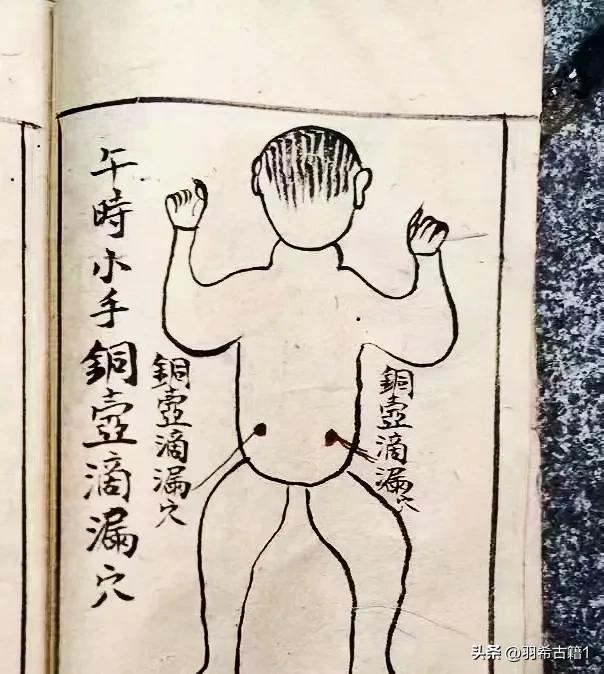 午時小手銅壺滴漏穴
銅壺滴漏穴
銅壺滴漏穴
头条 @羽希古籍1